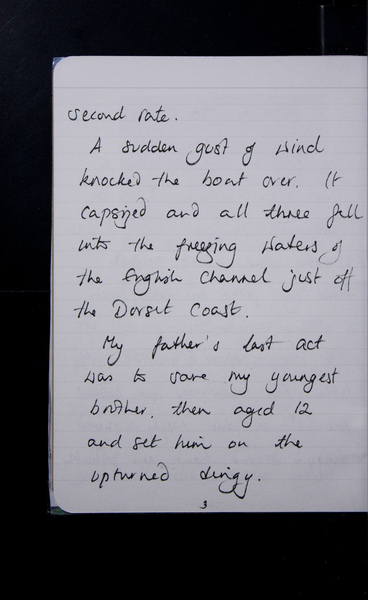 second rate.
A sudden gust of wind
knocked the boat over. It
capsized and all three fell
into the freezing waters of
the English Channel just off
the Dorset Coast.
My father's last act
was to save my youngest
brother, then aged 12
and set him on the
upturned dingy.
3